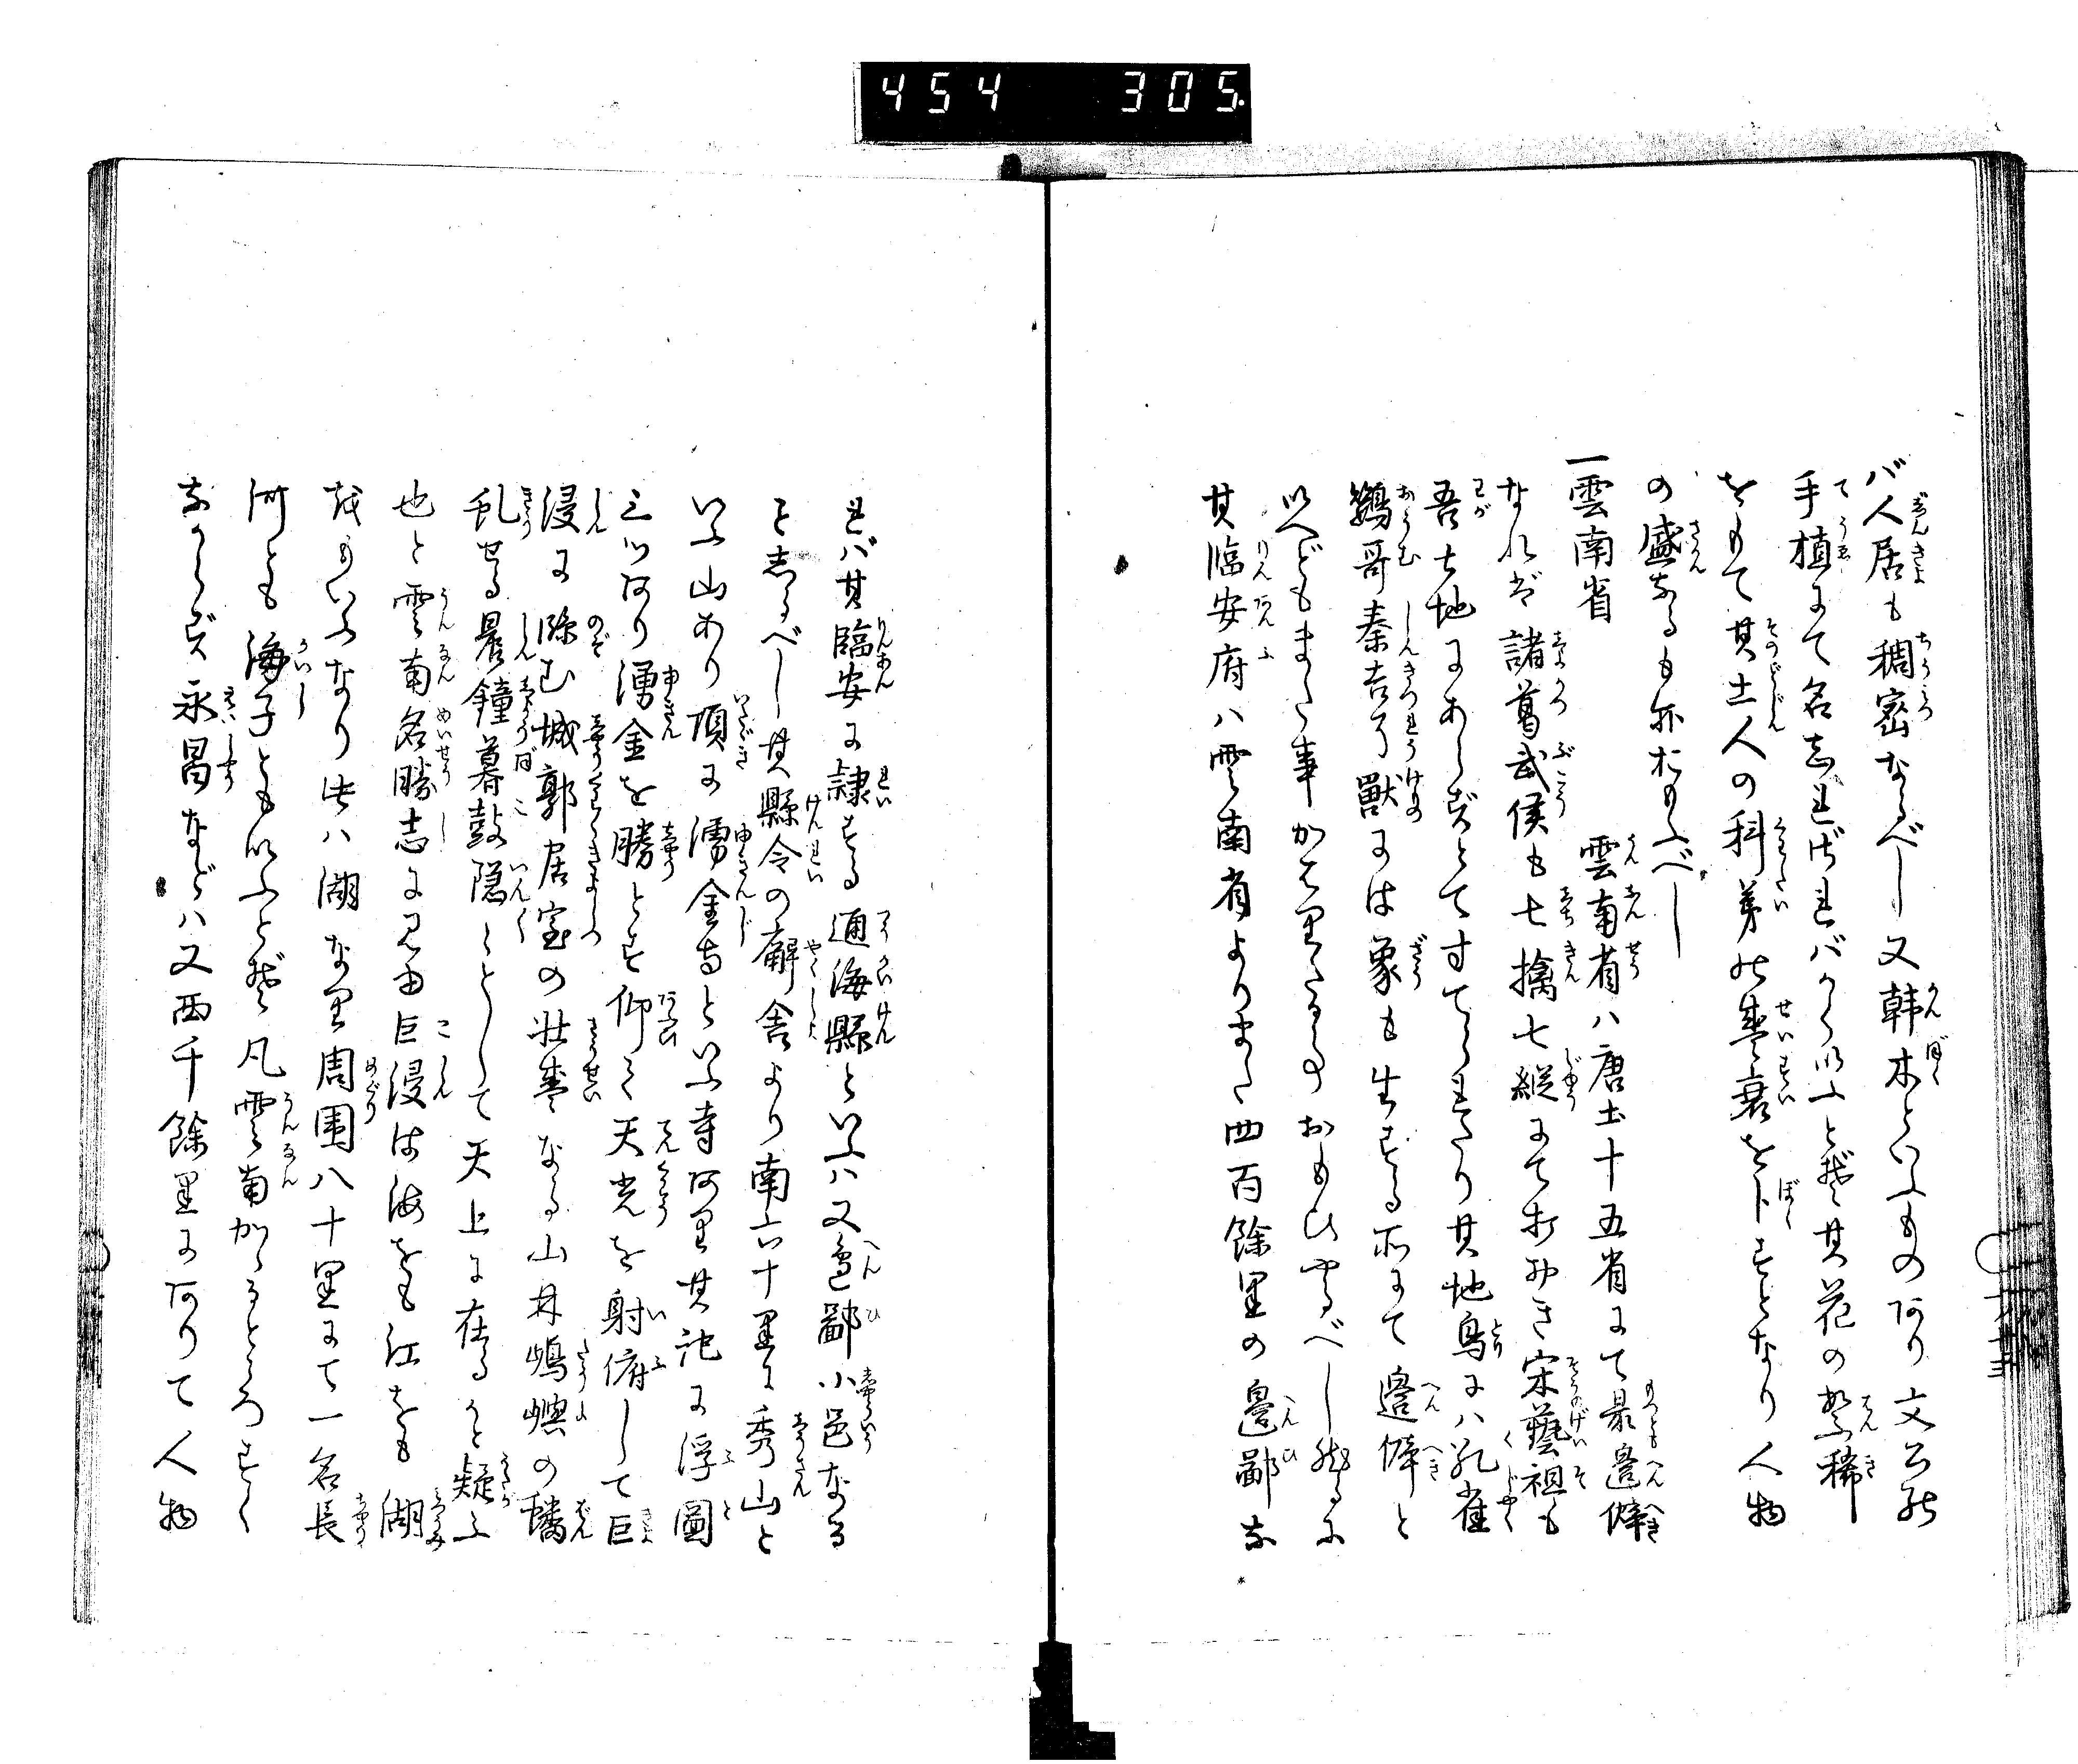 454 305.
バ人居も稠密なるべし又韓木といふものあり文公の
手植にて名志れざれバかく以ふとぞ其花の繁稀
をもて其土人の科第の盛衰を卜すとなり人物
の盛なるも亦おもふべし
一雲南省 雲南省ハ唐土十五省にて最邊僻
なれば諸葛武侯も七擒七縦にて打おき宋藝祖も
吾土地にあらずとてすてられたり其地鳥にハ孔雀
鸚哥秦吉了獸には象も生ずる所にて邊僻と
以へどもまた事かはりたるおもひやるべし然るに
其臨安府ハ雲南省よりまた四百餘里の邊鄙な
れバ其臨安に隷する通海縣といふハ又邊鄙小邑なる
を志るべし其縣令の廨舎より南六十里に秀山と
いふ山あり頂に湧金寺といふ寺あり其記に浮圖
三ツあり湧金を勝とす仰て天光を射俯して巨
浸に臨む城郭居室の壮盛なる山林嶋嶼の蟠
乱せる晨鐘暮鼓隠々として天上に在るかと疑ふ
也と雲南名勝志に見ゆ巨浸は海をも江をも湖
をもいふなり此ハ湖なり周囲八十里にて一名長
河とも海子とも以ふとぞ凡雲南かゝるところすく
なからず永昌などハ又西千餘里にありて人物